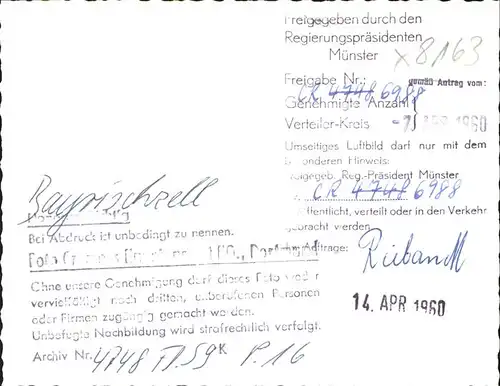 Freigegeben durch den
Regierungspräsidenten
Münster
x 8163
Freigabe Nr.:
gemäß Antrag vom:
CR 4748 6988
Genehmigte Anzahl
Verteiler-Kreis
-7. APR 1960
Umseitiges Luftbild darf nur mit dem
besonderen Hinweis:
Freigegeb. Reg.-Präsident Münster
CR 4748 6988
veröffentlicht, verteilt oder in den Verkehr
gebracht werden
Im Auftrage:
14. APR 1960
Bayrischzell
Bei Abdruck ist unbedingt zu nennen.
Foto
Ohne unsere Genehmigung darf dieses Foto weder
vervielfältigt noch dritten, unberufenen Personen
oder Firmen zugängig gemacht werden.
Unbefugte Nachbildung wird strafrechtlich verfolgt.
Archiv Nr. 4748 Fl. 59 K P. 16